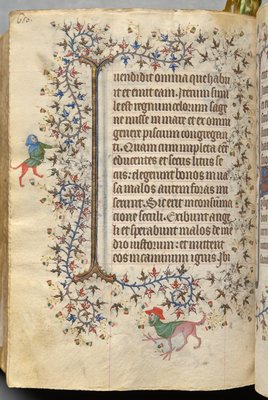 uendidit omnia que habu
it et emit eam. Iterum simi
le est regnum celorum sage
ne misse in mari et ex omni
genere piscium congregan
ti. Quam cum impleta esset
educentes et secus litus se
entes: elegerunt bonos in ua
sa malos autem foras mi
serunt. Sic erit in consūma
cione seculi. Exibunt ange
li et separabunt malos de me
dio iustorum: et mittent
eos in caminum ignis. Ibi